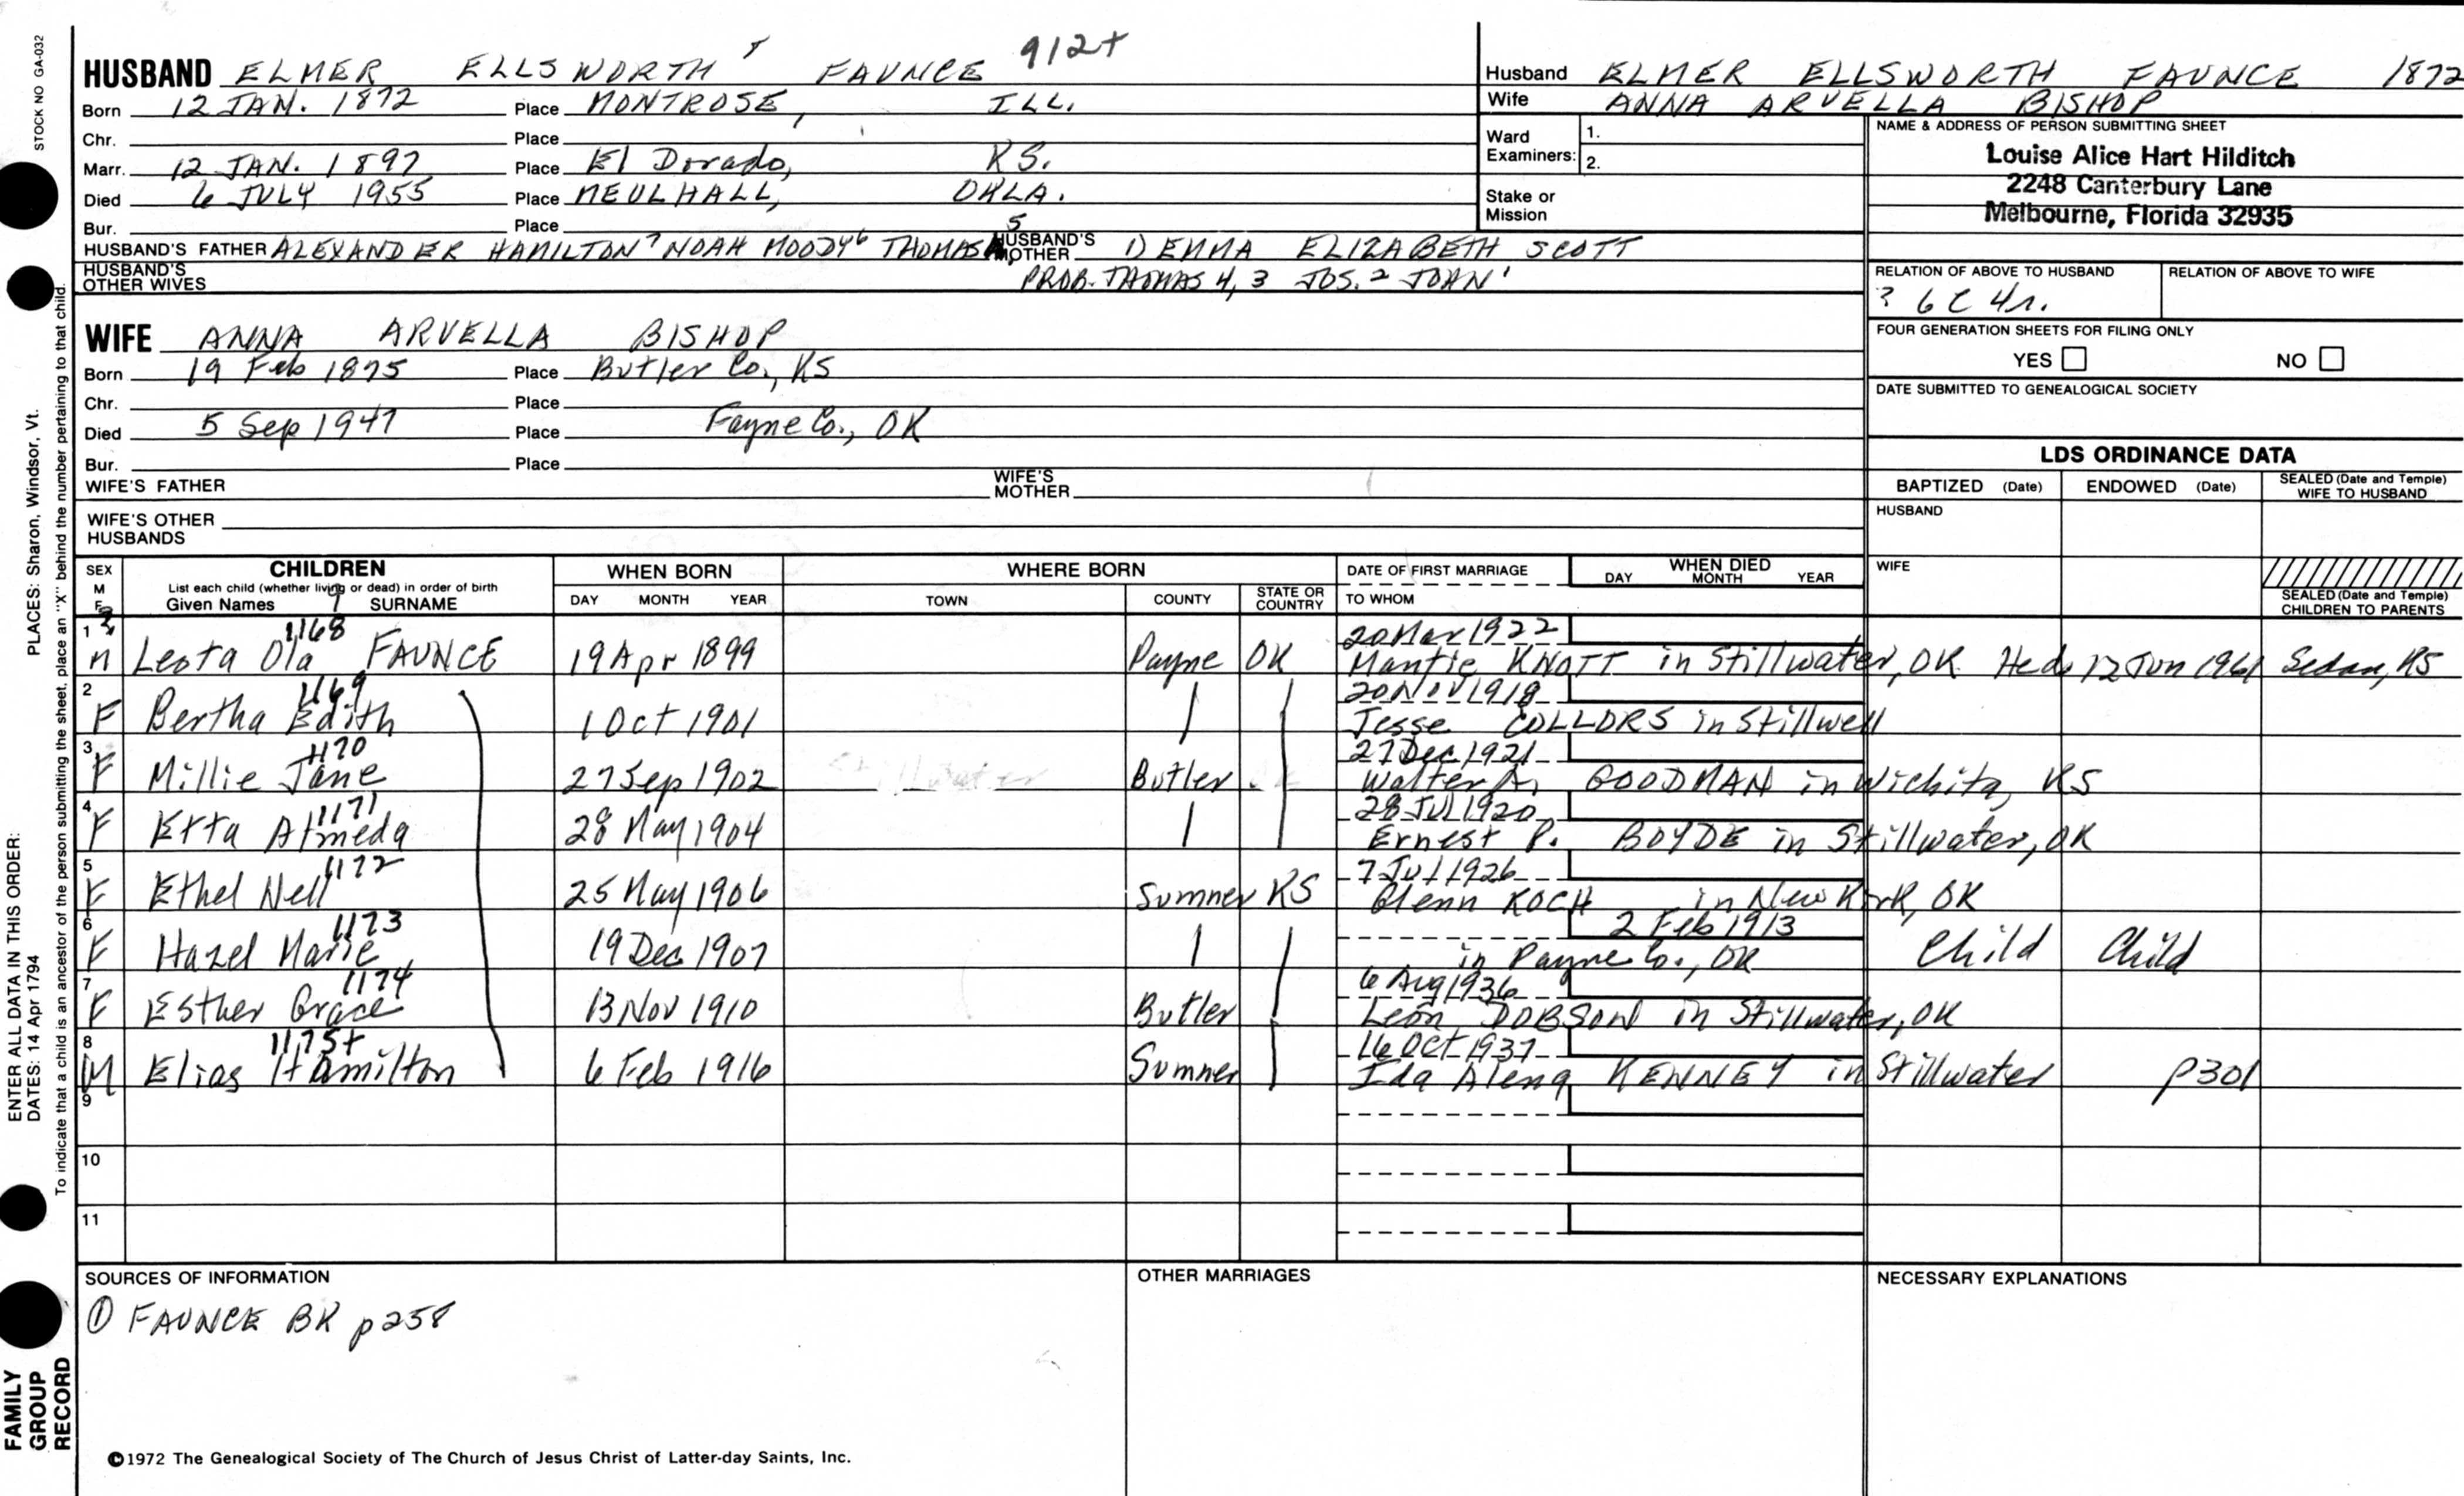 STOCK NO GA-032
HUSBAND ELMER ELLSWORTH 8 FAUNCE 912+
Born 12 JAN. 1872 Place MONTROSE, ILL.
Chr. Place
Marr. 12 JAN. 1897 Place El Dorado, KS.
Died 6 JULY 1955 Place NEULHALL, OKLA.
Bur. Place
HUSBAND'S FATHER ALEXANDER HAMILTON 7 NOAH MOODY 6 THOMAS 5 HUSBAND'S MOTHER 1) EMMA ELIZABETH SCOTT
HUSBAND'S OTHER WIVES PROB. THOMAS 4, 3 JOS. 2 JOHN 1
WIFE ANNA ARVELLA BISHOP
Born 19 Feb 1875 Place Butler Co., KS
Chr. Place
Died 5 Sep 1947 Place Fayne Co., OK
Bur. Place
WIFE'S FATHER WIFE'S MOTHER
WIFE'S OTHER HUSBANDS
Husband ELMER ELLSWORTH FAUNCE 1872
Wife ANNA ARVELLA BISHOP
Ward Examiners: 1.
2.
Stake or Mission
NAME & ADDRESS OF PERSON SUBMITTING SHEET
Louise Alice Hart Hilditch
2248 Canterbury Lane
Melbourne, Florida 32935
RELATION OF ABOVE TO HUSBAND RELATION OF ABOVE TO WIFE
? 6 C 4r.
FOUR GENERATION SHEETS FOR FILING ONLY
YES NO
DATE SUBMITTED TO GENEALOGICAL SOCIETY
LDS ORDINANCE DATA
BAPTIZED (Date) ENDOWED (Date) SEALED (Date and Temple) WIFE TO HUSBAND
HUSBAND
WIFE
SEALED (Date and Temple) CHILDREN TO PARENTS
SEX M F CHILDREN WHEN BORN WHERE BORN DATE OF FIRST MARRIAGE WHEN DIED
List each child (whether living or dead) in order of birth
Given Names 9 SURNAME DAY MONTH YEAR TOWN COUNTY STATE OR COUNTRY TO WHOM DAY MONTH YEAR
1 1168 20 Mar 1922
M Leota Ola FAUNCE 19 Apr 1899 Payne OK Mantie KNOTT in Stillwater, OK He d. 12 Jun 1961 Sedan, KS
2 1169 20 NOV 1918
F Bertha Edith 1 Oct 1901 Jesse COLLORS in Stillwell
3 1170 27 Dec 1921
F Millie Jane 27 Sep 1902 Stillwater Butler Walter A. GOODMAN in Wichita, KS
4 1171 28 Jul 1920
F Etta Almeda 28 May 1904 Ernest P. BOYDE in Stillwater, OK
5 1172 7 Jul 1926
F Ethel Nell 25 May 1906 Sumner KS Glenn KOCH in New Kirk, OK
6 1173 2 Feb 1913
F Hazel Marie 19 Dec 1907 in Payne Co., OK Child Child
7 1174 6 Aug 1936
F Esther Grace 13 Nov 1910 Butler Leon DOBSON in Stillwater, OK
8 1175+ 16 Oct 1937
M Elias Hamilton 6 Feb 1916 Sumner Ida Alena KENNEY in Stillwater p301
9
10
11
SOURCES OF INFORMATION OTHER MARRIAGES NECESSARY EXPLANATIONS
① FAUNCE BK p258
©1972 The Genealogical Society of The Church of Jesus Christ of Latter-day Saints, Inc.
FAMILY GROUP RECORD
ENTER ALL DATA IN THIS ORDER:
DATES: 14 Apr 1794 PLACES: Sharon, Windsor, Vt.
To indicate that a child is an ancestor of the person submitting the sheet, place an "X" behind the number pertaining to that child.